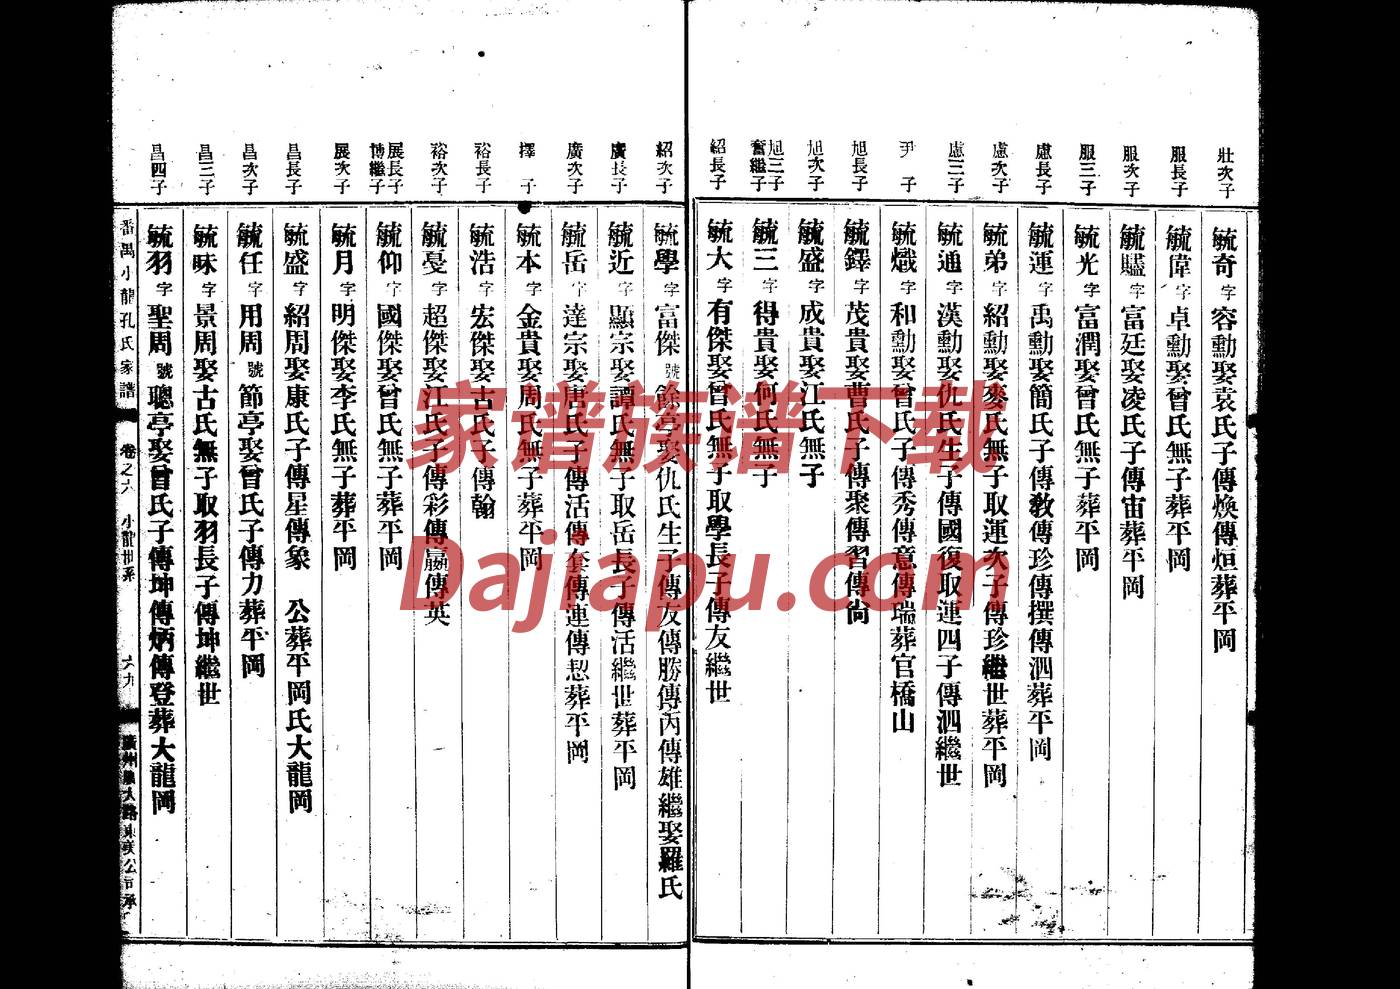 壯次子
毓奇字容勳娶袁氏子傳煥傳烜葬平岡
服長子
毓偉字卓勳娶曾氏無子葬平岡
服次子
毓贐字富廷娶凌氏子傳宙葬平岡
服三子
毓光字富潤娶曾氏無子葬平岡
慮長子
毓運字禹勳娶簡氏子傳教傳珍傳撰傳泗葬平岡
慮次子
毓弟字紹勳娶麥氏無子取運次子傳珍繼世葬平岡
慮三子
毓通字漢勳娶仇氏生子傳國復取運四子傳泗繼世
尹子
毓熾字和勳娶曾氏子傳秀傳意傳瑞葬官橋山
旭長子
毓鐸字茂貴娶曹氏子傳聚傳習傳尙
旭次子
毓盛字成貴娶江氏無子
旭三子
奮繼子
毓三字得貴娶何氏無子
紹長子
毓大字有傑娶曾氏無子取學長子傳友繼世
紹次子
毓學字富傑號餘亭娶仇氏生子傳友傳勝傳丙傳雄繼娶羅氏
廣長子
毓近字顯宗娶譚氏無子取岳長子傳活繼世葬平岡
廣次子
毓岳字達宗娶唐氏子傳活傳套傳連傳恝葬平岡
擇子
毓本字金貴娶周氏無子葬平岡
裕長子
毓浩字宏傑娶古氏子傳翰
裕次子
毓憂字超傑娶江氏子傳彩傳嬴傳英
展長子
博繼子
毓仰字國傑娶曾氏無子葬平岡
展次子
毓月字明傑娶李氏無子葬平岡
昌長子
毓盛字紹周娶康氏子傳星傳象 公葬平岡氏大龍岡
昌次子
毓任字用周號節亭娶曾氏子傳力葬平岡
昌三子
毓昧字景周娶古氏無子取羽長子傳坤繼世
昌四子
毓羽字聖周號聰亭娶曾氏子傳坤傳炳傳登葬大龍岡
番禺小龍孔氏家譜 卷之六 小龍世系 六九
家谱族谱下载
Dajiapu.com